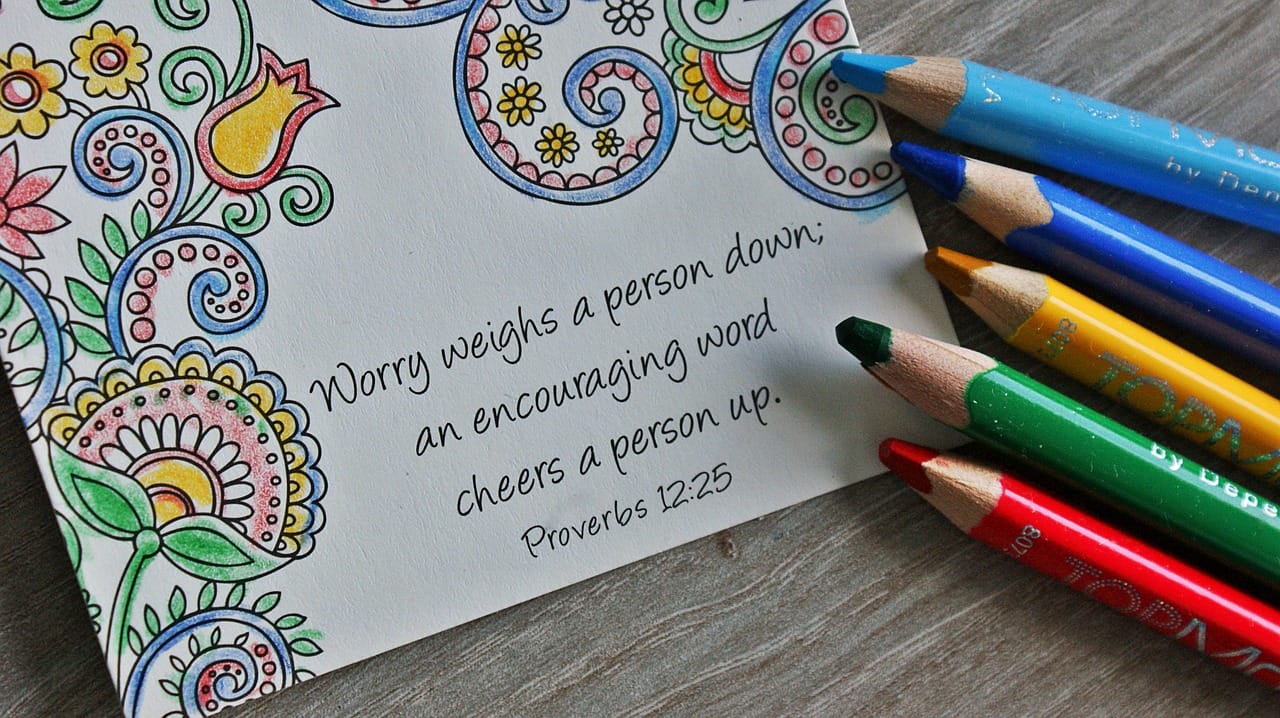 Worry weighs a person down;
an encouraging word
cheers a person up.
Proverbs 12:25
by Depe
TOPM
807
TOPMO